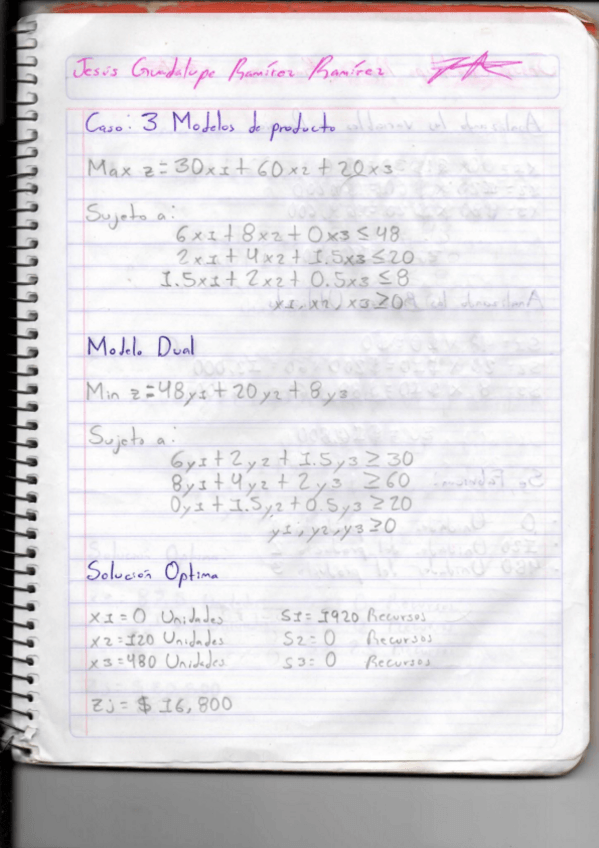 Jesús Guadalupe Ramírez Ramírez
Caso: 3 Modelos de producto
Max z=30x1+60x2+20x3
Sujeto a:
6x1+8x2+0x3≤48
2x1+4x2+1.5x3≤20
1.5x1+2x2+0.5x3≤8
x1,x2,x3≥0
Modelo Dual
Min z=48y1+20y2+8y3
Sujeto a:
6y1+2y2+1.5y3≥30
8y1+4y2+2y3≥60
0y1+1.5y2+0.5y3≥20
y1,y2,y3≥0
Solución Optima
x1=0 Unidades S1=1920 Recursos
x2=120 Unidades S2=0 Recursos
x3=480 Unidades S3=0 Recursos
Zj=$16,800